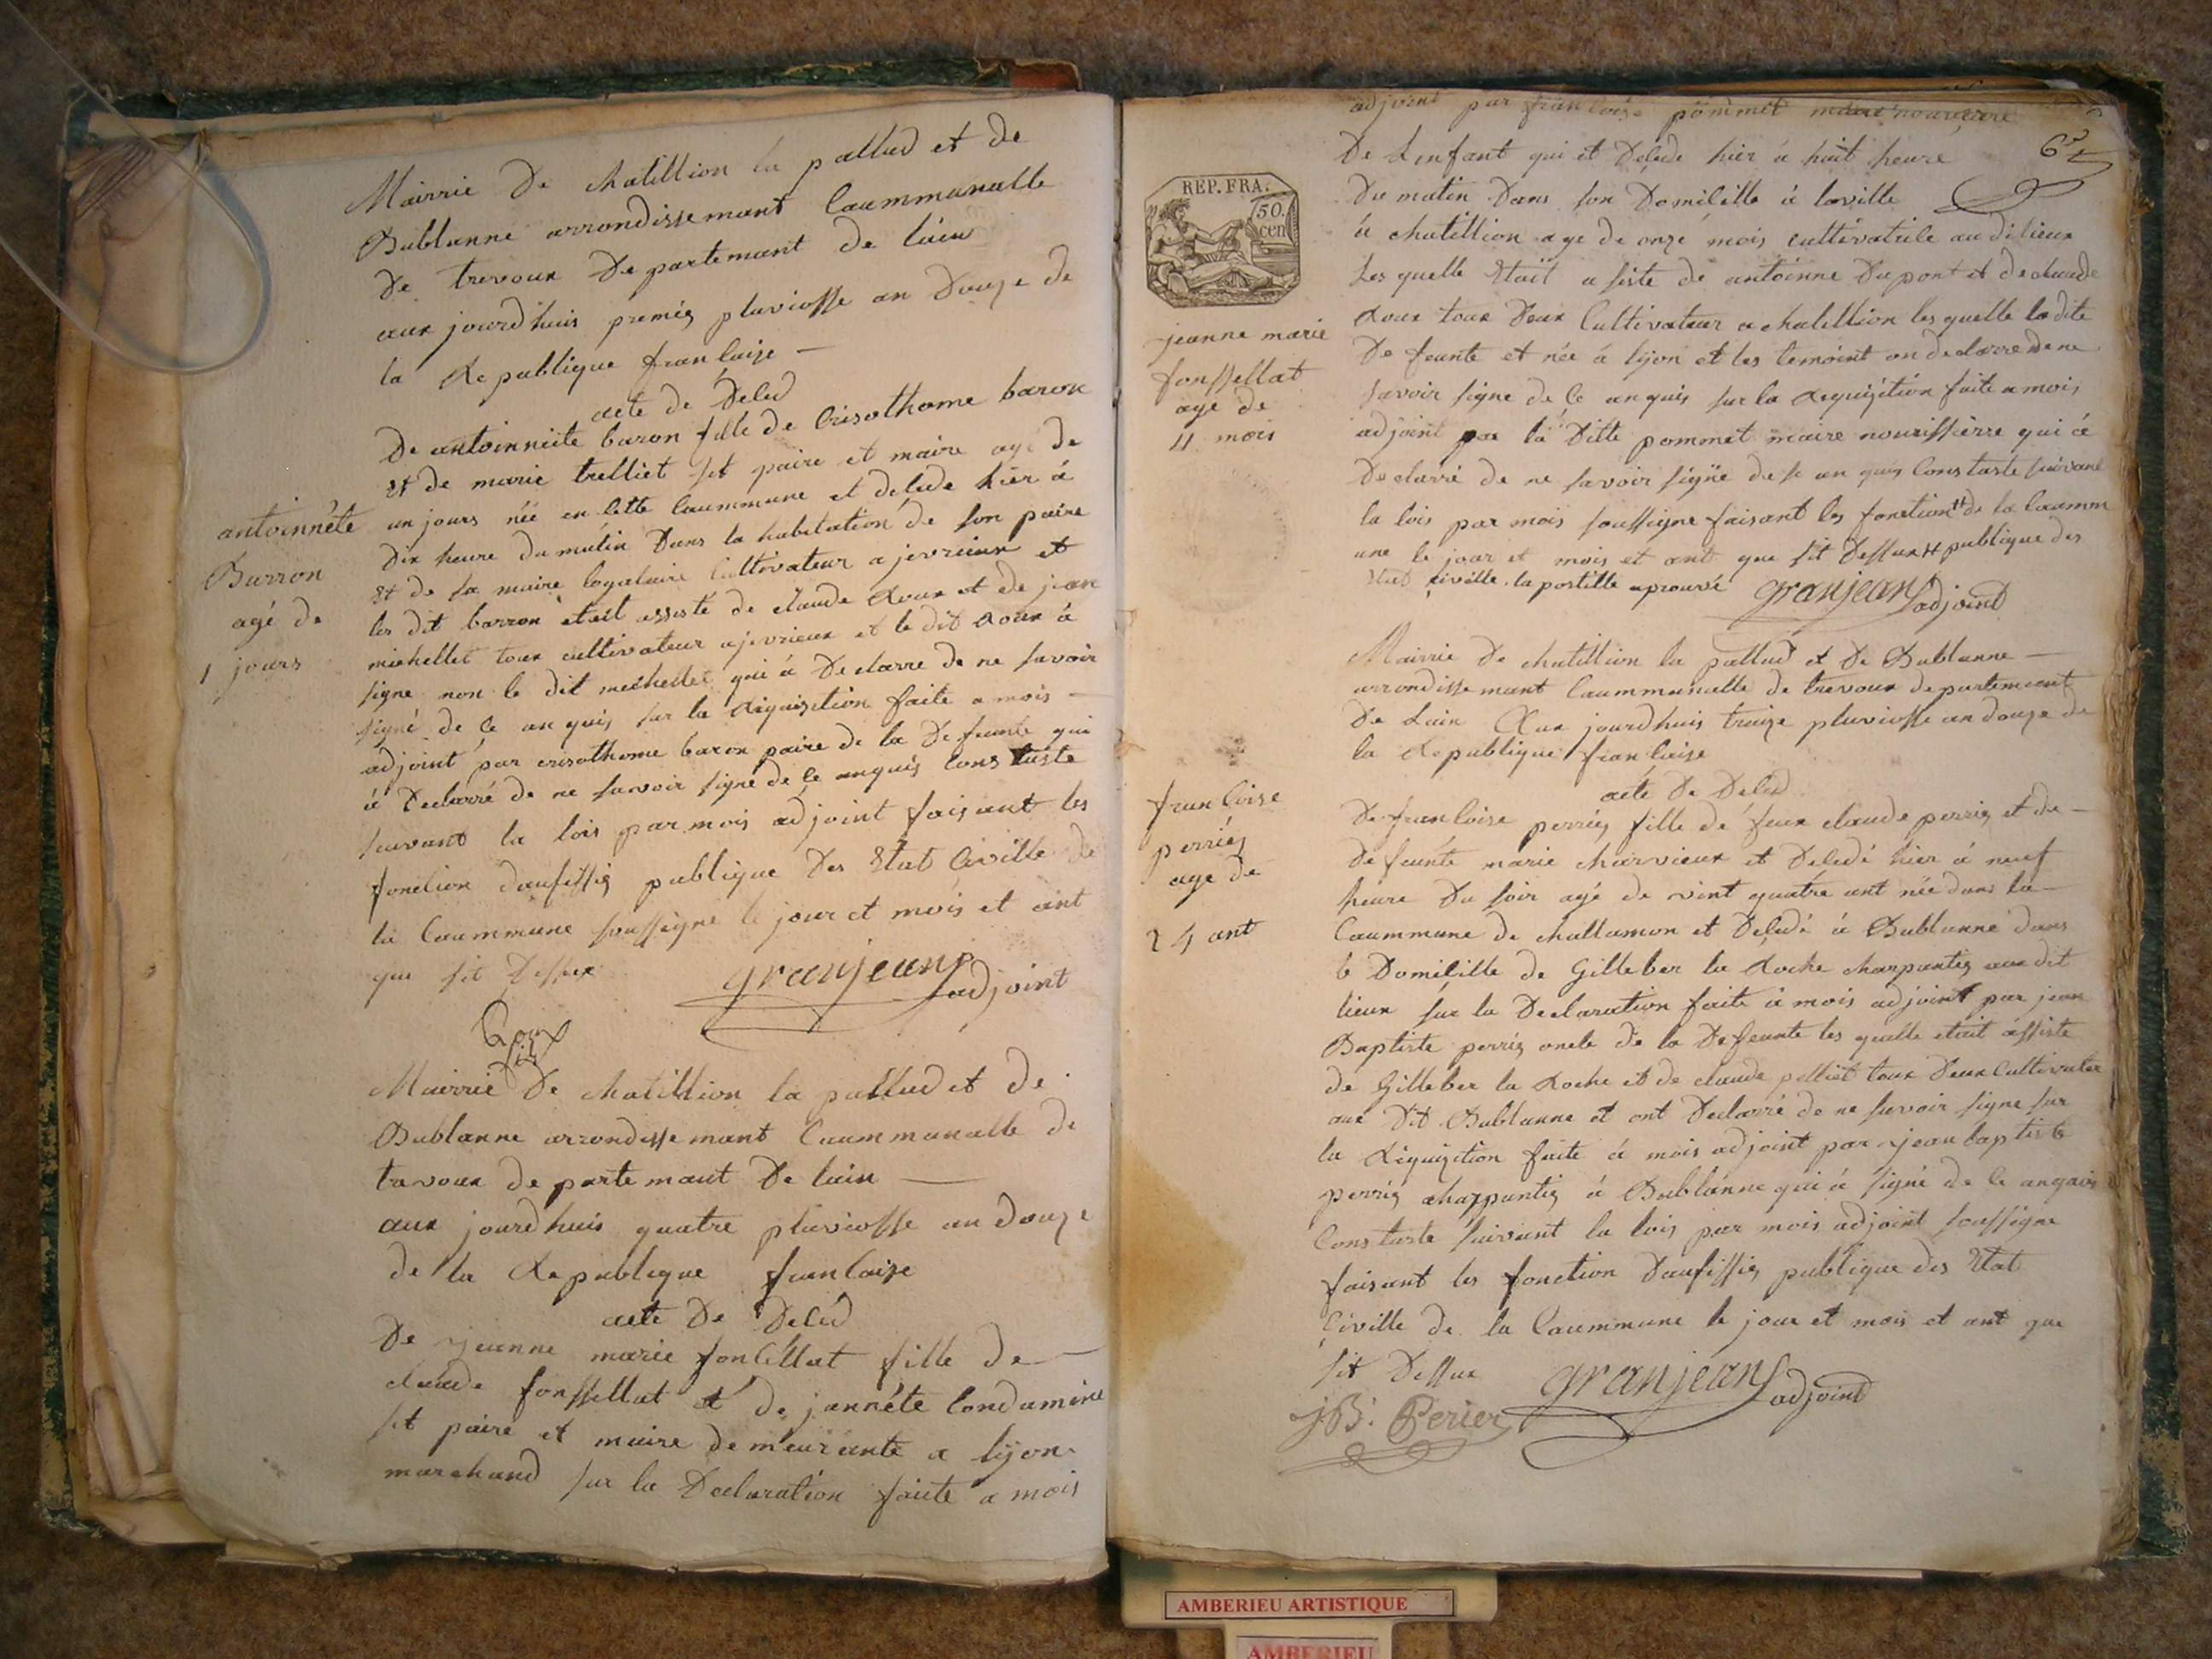 Mairrie De chatillion la pallud et de
Dublanne arrondissemant Caummunalle
De trevoux De partemant de lain
aux jourdhuis premiés pluviosse an Douze de
la Republique francaise —
acte de Deced
De antoinniete baron fille de Crisothome baron
Et de marie trelliet set paire et maire agé de
un jours née en cette Caummune et décede hier à
Dix heure du mâtin Dans la habitation de son paire
Et de sa maire logataire Cultivateur a jevrieux et
les dit barron était assisté de claude Roux et de jean
miehellet toux cultivateur ajevrieux et le dit Roux à
signe non le dit miehellet qui à Declarre de ne savoir
signé de ce anquis sur la Réquisition faite a mois —
adjoint par crisothome baron paire de la Defeunte qui
à Declarré de ne savoir signé de ce anquis Constaste
suivant la lois par mois adjoint faisant les
fonction daufissiés publique Des Etat Civille de
la Caummune soussigné le jour et mois et ant
que sit Dessux granjean adjoint
Roux
antoinnéte
Barron
agé de
1 jours
Mairrie De chatillion la pallud et de
Dublanne arrondissemant Caummunalle de
travoux de parte mant De lain —
aux jourdhuis quatre pluviosse an douze
de la Republique francaise
acte De Decéd
De jeanne marie fonCellat fille de —
claude fonssellat et de jannéte Condamine
set paire et maire demeurante a lÿon
marchand sur la Declaration faite a mois
adjoint par francoise pommet maire nourisierre
De Lenfant qui et Décede hier à huit heure
Du matin Dans son Domicille à laville
à chatillion age de onze mois cultivatrice audilieux
Les quelle Etait a siste de antoinne Dupont et de claude
Roux toux Deux Cultivateur a chatillion les quelle la dite
De feunte et née à lyon et les temoint on declarre de ne
savoir signe de ce anquis sur la Requisition faite a mois
adjoint par la Ditte pommet maire nourissierre qui à
Declarré de ne savoir signe de se an quis Constaste suivant
la lois par mois soussigne faisant les fonction de la Caumm
une le jour et mois et ant que sit Dessux publique des
Etat civille la postille aprouvé granjean adjoint
REP. FRA.
50.
cen
jeanne marie
fonssellat
age de
11 mois
Mairrie De chatillion la pallud et De Dublanne —
arrondissemant Caummunalle de trevoux departemant
De Lain Aux jourdhuis traize pluviosse an douze de
la Republique francaise
acte De Deced
De francoise perriés fille dé feux claude perriés et de —
Defeunte marie charvieux et Décedé hier à neuf
heure Du soir agé de vint quatre ant née dans la —
Caummune de challamon et Décedé à Dublanne dans
le Domicille de Gilleber la Roche charpantiés aux dit
lieux sur la Declaration faite à mois adjoint par jean
Baptiste perriés oncle de la Defeunte les quelle etait assiste
de Gilleber la Roche et de claude pelliet toux Deux Cultivater
aux Dit Dublanne et ont Declarré de ne savoir signe sur
la Réquizition faite à mois adjoint par jean baptiste
perriés charpantiés à Dublanne qui à signé de ce anquis
Constaste suivant la lois par mois adjoint soussigne
faisant les fonction Daufissiés publique des Etat
Civille de la Caummune le jour et mois et ant que
sit Dessux granjean adjoint
JB. Perier
francoise
perriés
age de
24 ant
AMBERIEU ARTISTIQUE
AMBERIEU